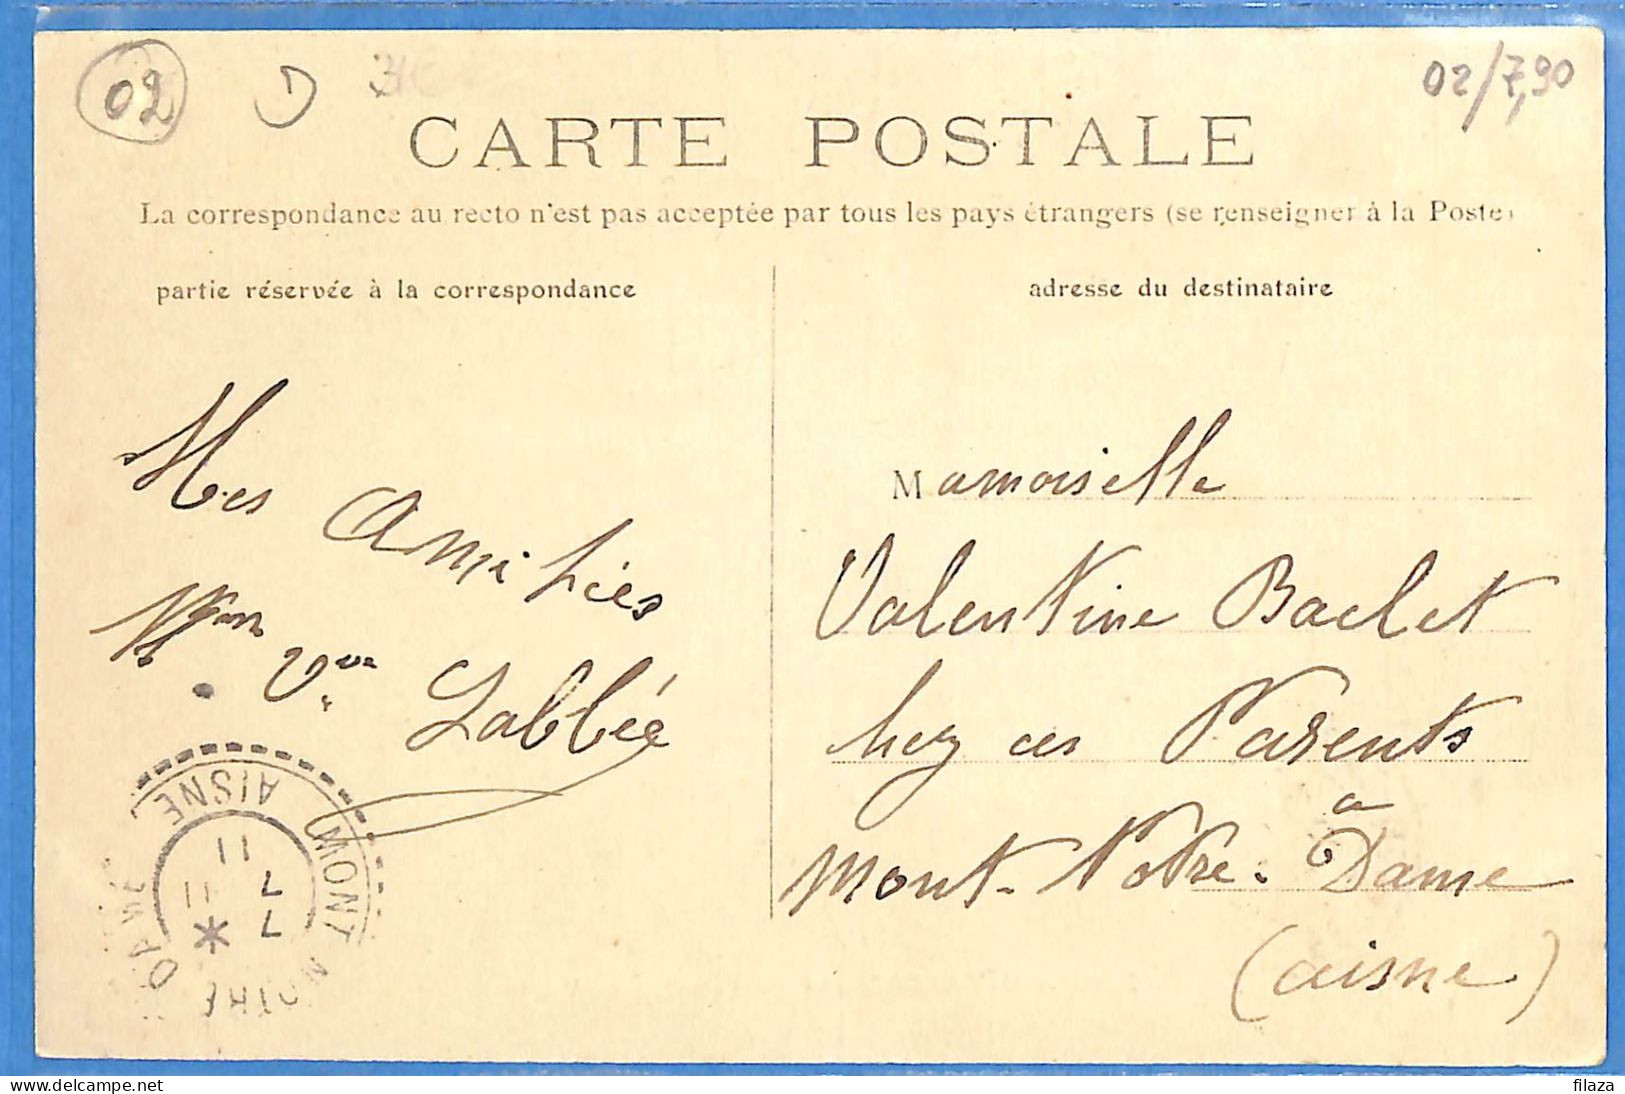 02
02/7,90
CARTE POSTALE
La correspondance au recto n'est pas acceptée par tous les pays étrangers (se renseigner à la Poste)
partie réservée à la correspondance
adresse du destinataire
Mes Amitiés
Vve Labbée
Mamoiselle
Valentine Baclet
hez ces Parents
a
Mont-Notre-Dame
(aisne)
MONT NOTRE DAME
AISNE
11
7
7
11
*
filaza